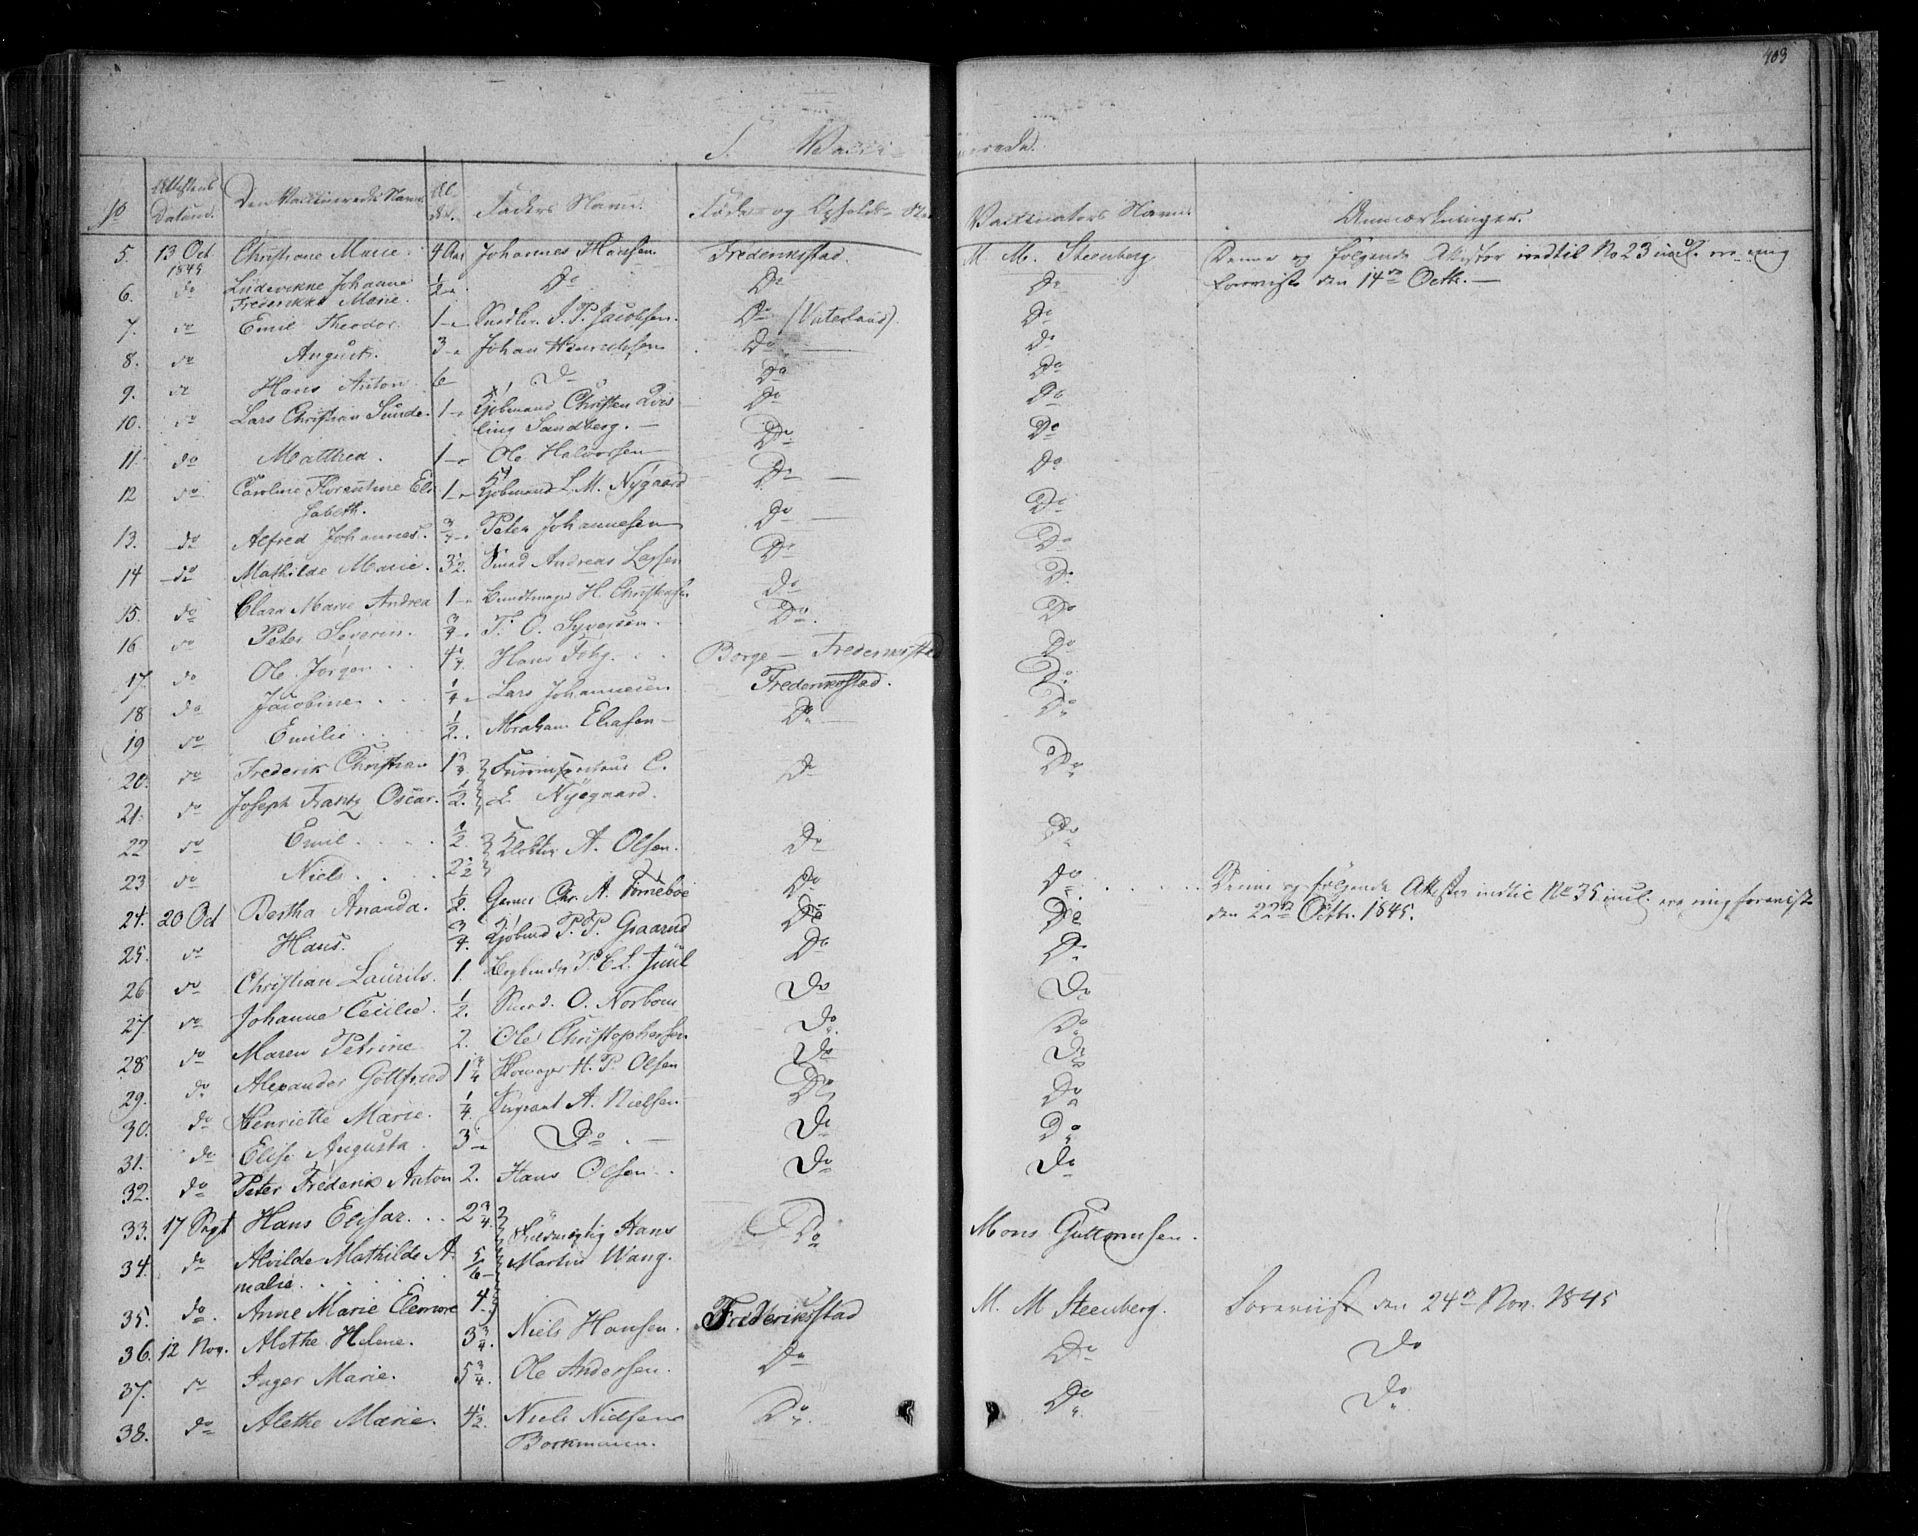 403
Vacci- nerede.
No Attestens Datum. Den Vaccineredes Navn Al der. Faders Navn. Føde- og Opholds-Sted Vaccinators Navn. Anmærkninger.
5. 13 Oct 1845 Christiane Marie. 4 Aar Johannes Hansen Frederiksstad. M. M. Steenberg Denne og følgende Attester indtil No 23 incl. ere mig
foreviste den 14de Octb. —
6. do Ludevikke Johanne ½ Do Do Do
Frederikke Marie.
7. do Emil Theodor. 1 Snedker J. P. Jacobsen. Do (Vaterland). Do
8. do August. 3 Johan Henrichsen Do Do
9. do Hans Anton 6 Do Do Do
10. do Lars Christian Sunde. 1 Kjøbmand Christen Qvis Do Do
ling Sandberg. —
11. do Matthea. 1 Ole Halvorsen Do Do
12 do Caroline Florentine Eli 1 Kjøbmand L. M. Nygaard Do Do
sabeth.
13. do Alfred Johannes. ¾ Peter Johannesen Do Do
14 do Mathilde Marie. 3½ Smed Andreas Larsen Do Do
15. do Clara Marie Andrea 1 Bundtmager H. Christensen Do Do
16 do Peter Severin. ¾ T. O. Syversen. Do. Do
17. do Ole Jørgen 4¼ Hans Foby. Borge — Frederiksstad Do
18 do Jacobine. ¼ Lars Johannesen Frederiksstad. Do
19 do Emilie ½ Abraham Eliasen Do Do
20. do Frederik Christian 1¾ C. Do Do
21. do Joseph Frantz Oscar. ½ L. Nygaard.
22 do Emil ½ A. Olsen. Do Do
23 do Niels. 2½
24. 20 Oct Bertha Ananda. ½ Garver Chr. A. Torneboe Do Do Denne og følgende Attester indtil No 35 incl. ere mig foreviste
den 22de Octbr. 1845.
25. do Hans. ¾ Kjøbmd P. P. Gaarud Do Do
26 do Christian Laurits. 1. P. C. L. Juul Do Do
27. do Johanne Cecilie. ½ Smed. O. Norbom Do Do
28 do Maren Petrine 2. Ole Christophersen Do Do
29. do Alexander Gottfried 1¾ Skomager H. P. Olsen Do Do
30. do Henriette Marie. ¼ Sergeant A. Nielsen Do Do
31. do Elise Augusta 3 Do. Do Do
32. do Peter Frederik Anton 2. Hans Olsen Do Do
33. 17 Sept Hans Elisar. 2¾ Hans Do Mons Guttormsen.
34. do Alvilde Mathilde A 5/6 Martin Wang.
malie.
35. do. Anne Marie Elenore 4.
36. 12 Nov. Alethe Helene. 3¾ Niels Hansen. Frederiksstad M. M Steenberg. Foreviist den 24de Nov. 1845
37. do Inger Marie. 5¾ Ole Andersen. Do Do Do
38. do Alethe Marie. 4½ Niels Nielsen Do Do Do
Borkmann.